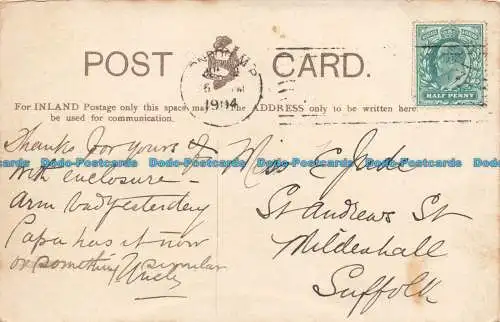 POST CARD.
For INLAND Postage only this space may
be used for communication.
The ADDRESS only to be written here.
1904
HALF PENNY
Thanks for yours &
with enclosure
Arm bad yesterday
Papa has it now
or something similar
Miss E Jude
St Andrews St
Mildenhall
Suffolk
Dodo-Postcards Dodo-Postcards Dodo-Postcards
Dodo-Postcards Dodo-Postcards Dodo-Postcards